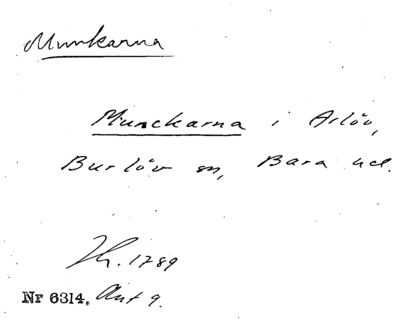 Munkarna
Munckarna i Arlöv,
Burlöv sn, Bara hd.
1789
Nr 6314. Ant 9.